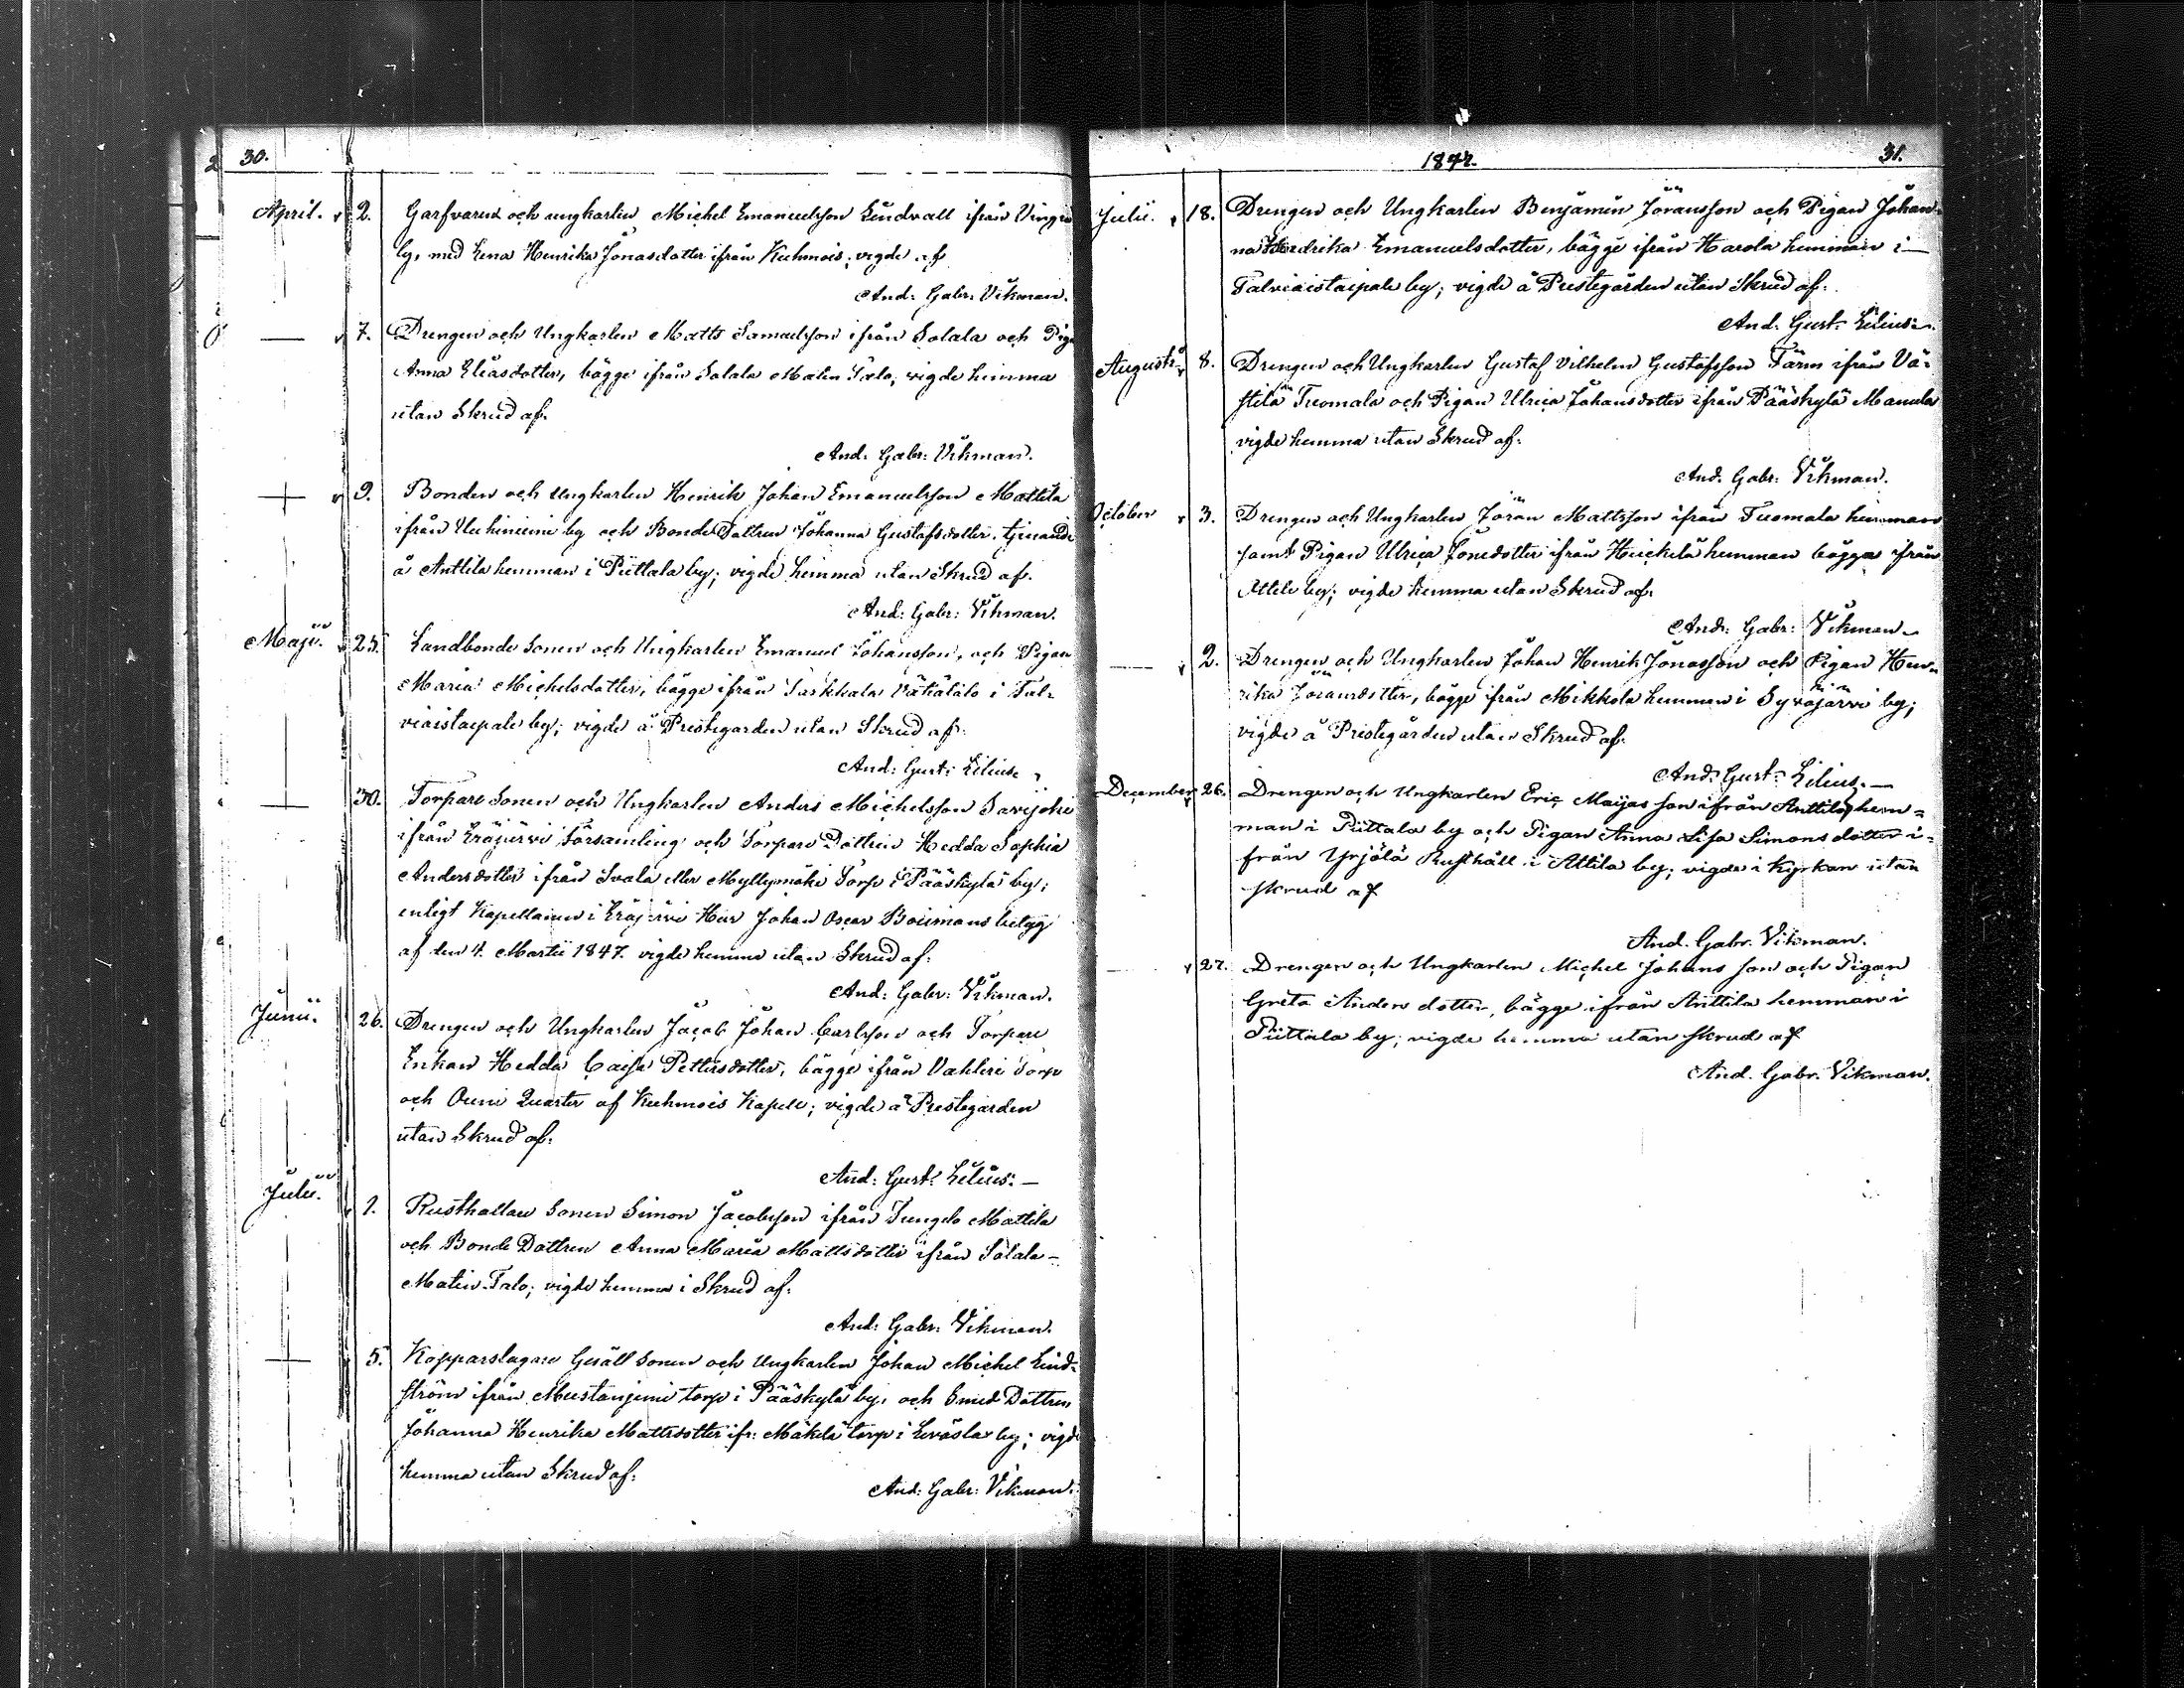 30.
April. 2. Garfvaren och ungkarlen Michel Emanuelsson Lindvall ifrån
by, med Lena Henrika Jonasdotter ifrån Kuhmois; vigde af
And: Gabr: Vikman.
— 7. Drengen och Ungkarlen Matts Samuelsson ifrån Salala och
Anna Eliasdotter, bägge ifrån Salala Matin Talo, vigde hemma
utan Skrud af.
And: Gabr: Vikman.
— 9. Bonden och Ungkarlen Henrik Johan Emanuelsson Mattila
ifrån by och Bonde Dottren Johanna Gustafsdotter.
å Anttila hemman i Püttala by; vigde hemma utan Skrud af.
And: Gabr: Vikman.
Maji. 25. Landbonde Sonen och Ungkarlen Emanuel Johansson, och Pigan
Maria Michelsdotter, bägge ifrån i Tal-
viaistaipale by; vigde å Prestegården utan Skrud af.
And: Gust: Lilius.
— 30. Torpare Sonen och Ungkarlen Anders Michelsson Savijoki
ifrån Eräjärvi Församling och Torpare Dottren Hedda Sophia
Andersdotter ifrån Svala eller Myllymäki Torp i Pääskylä by;
enligt Kapellanen i Eräjärvi Herr Johan Oscar betyg
af den 4. Martii 1847. vigde hemma utan Skrud af.
And: Gabr: Vikman.
Junii. 26. Drengen och Ungkarlen Jacob Johan Carlsson och Torpare
Enkan Hedda Caisa Pettersdotter, bägge ifrån Torp
och af Kuhmois Kapell; vigde å Prestegården
utan Skrud af.
And: Gust: Lilius: —
Julii. 1. Rusthållare Sonen Simon Jacobsson ifrån Mattila
och Bonde Dottren Anna Maria Mattsdotter ifrån Salala-
Matin-Talo; vigde hemma i Skrud af.
And: Gabr: Vikman.
— 5. Kopparslagare Gesäll Sonen och Ungkarlen Johan Michel Lind-
ström ifrån Mustanjemi torp i Pääskylä by, och Smed Dottren
Johanna Henrika Mattsdotter ifr: Mäkelä torp i by; vigde
hemma utan Skrud af.
And: Gabr: Vikman.
1847. 31.
Julii. 18. Drengen och Ungkarlen Benjamin Jöransson och Pigan Johan-
na Hendrika Emanuelsdotter, bägge ifrån Harola hemman i
Talviaistaipale by; vigde å Prestegården utan Skrud af.
And: Gust: Lilius.
Augusti 8. Drengen och Ungkarlen Gustaf Vilhelm Gustafsson Färm ifrån Vä-
stilä Tuomala och Pigan Ulrica Johansdotter ifrån Pääskylä
vigde hemma utan Skrud af.
And. Gabr: Vikman.
October 3. Drengen och Ungkarlen Jöran Mattsson ifrån Tuomala hemman
samt Pigan Ulrica ifrån hemman bägge ifrån
Attila by; vigde hemma utan Skrud af.
And: Gabr: Vikman.
— 2. Drengen och Ungkarlen Johan Henrik Jonasson och Pigan Hen-
rika Jöransdotter, bägge ifrån Mikkola hemman i Syväjärvi by;
vigde å Prestegården utan Skrud af.
And: Gust: Lilius. —
December 26. Drengen och Ungkarlen Eric Mayas son ifrån Anttila hem-
man i Püttala by och Pigan Anna Lisa Simons dotter i-
från Yrjölä Rusthåll i Attila by; vigde i Kyrkan utan
skrud af
And. Gabr. Vikman.
— 27. Drengen och Ungkarlen Michel Johans son och Pigan
Greta Anders dotter, bägge ifrån Anttila hemman i
Püttala by; vigde hemma utan skrud af
And. Gabr. Vikman.